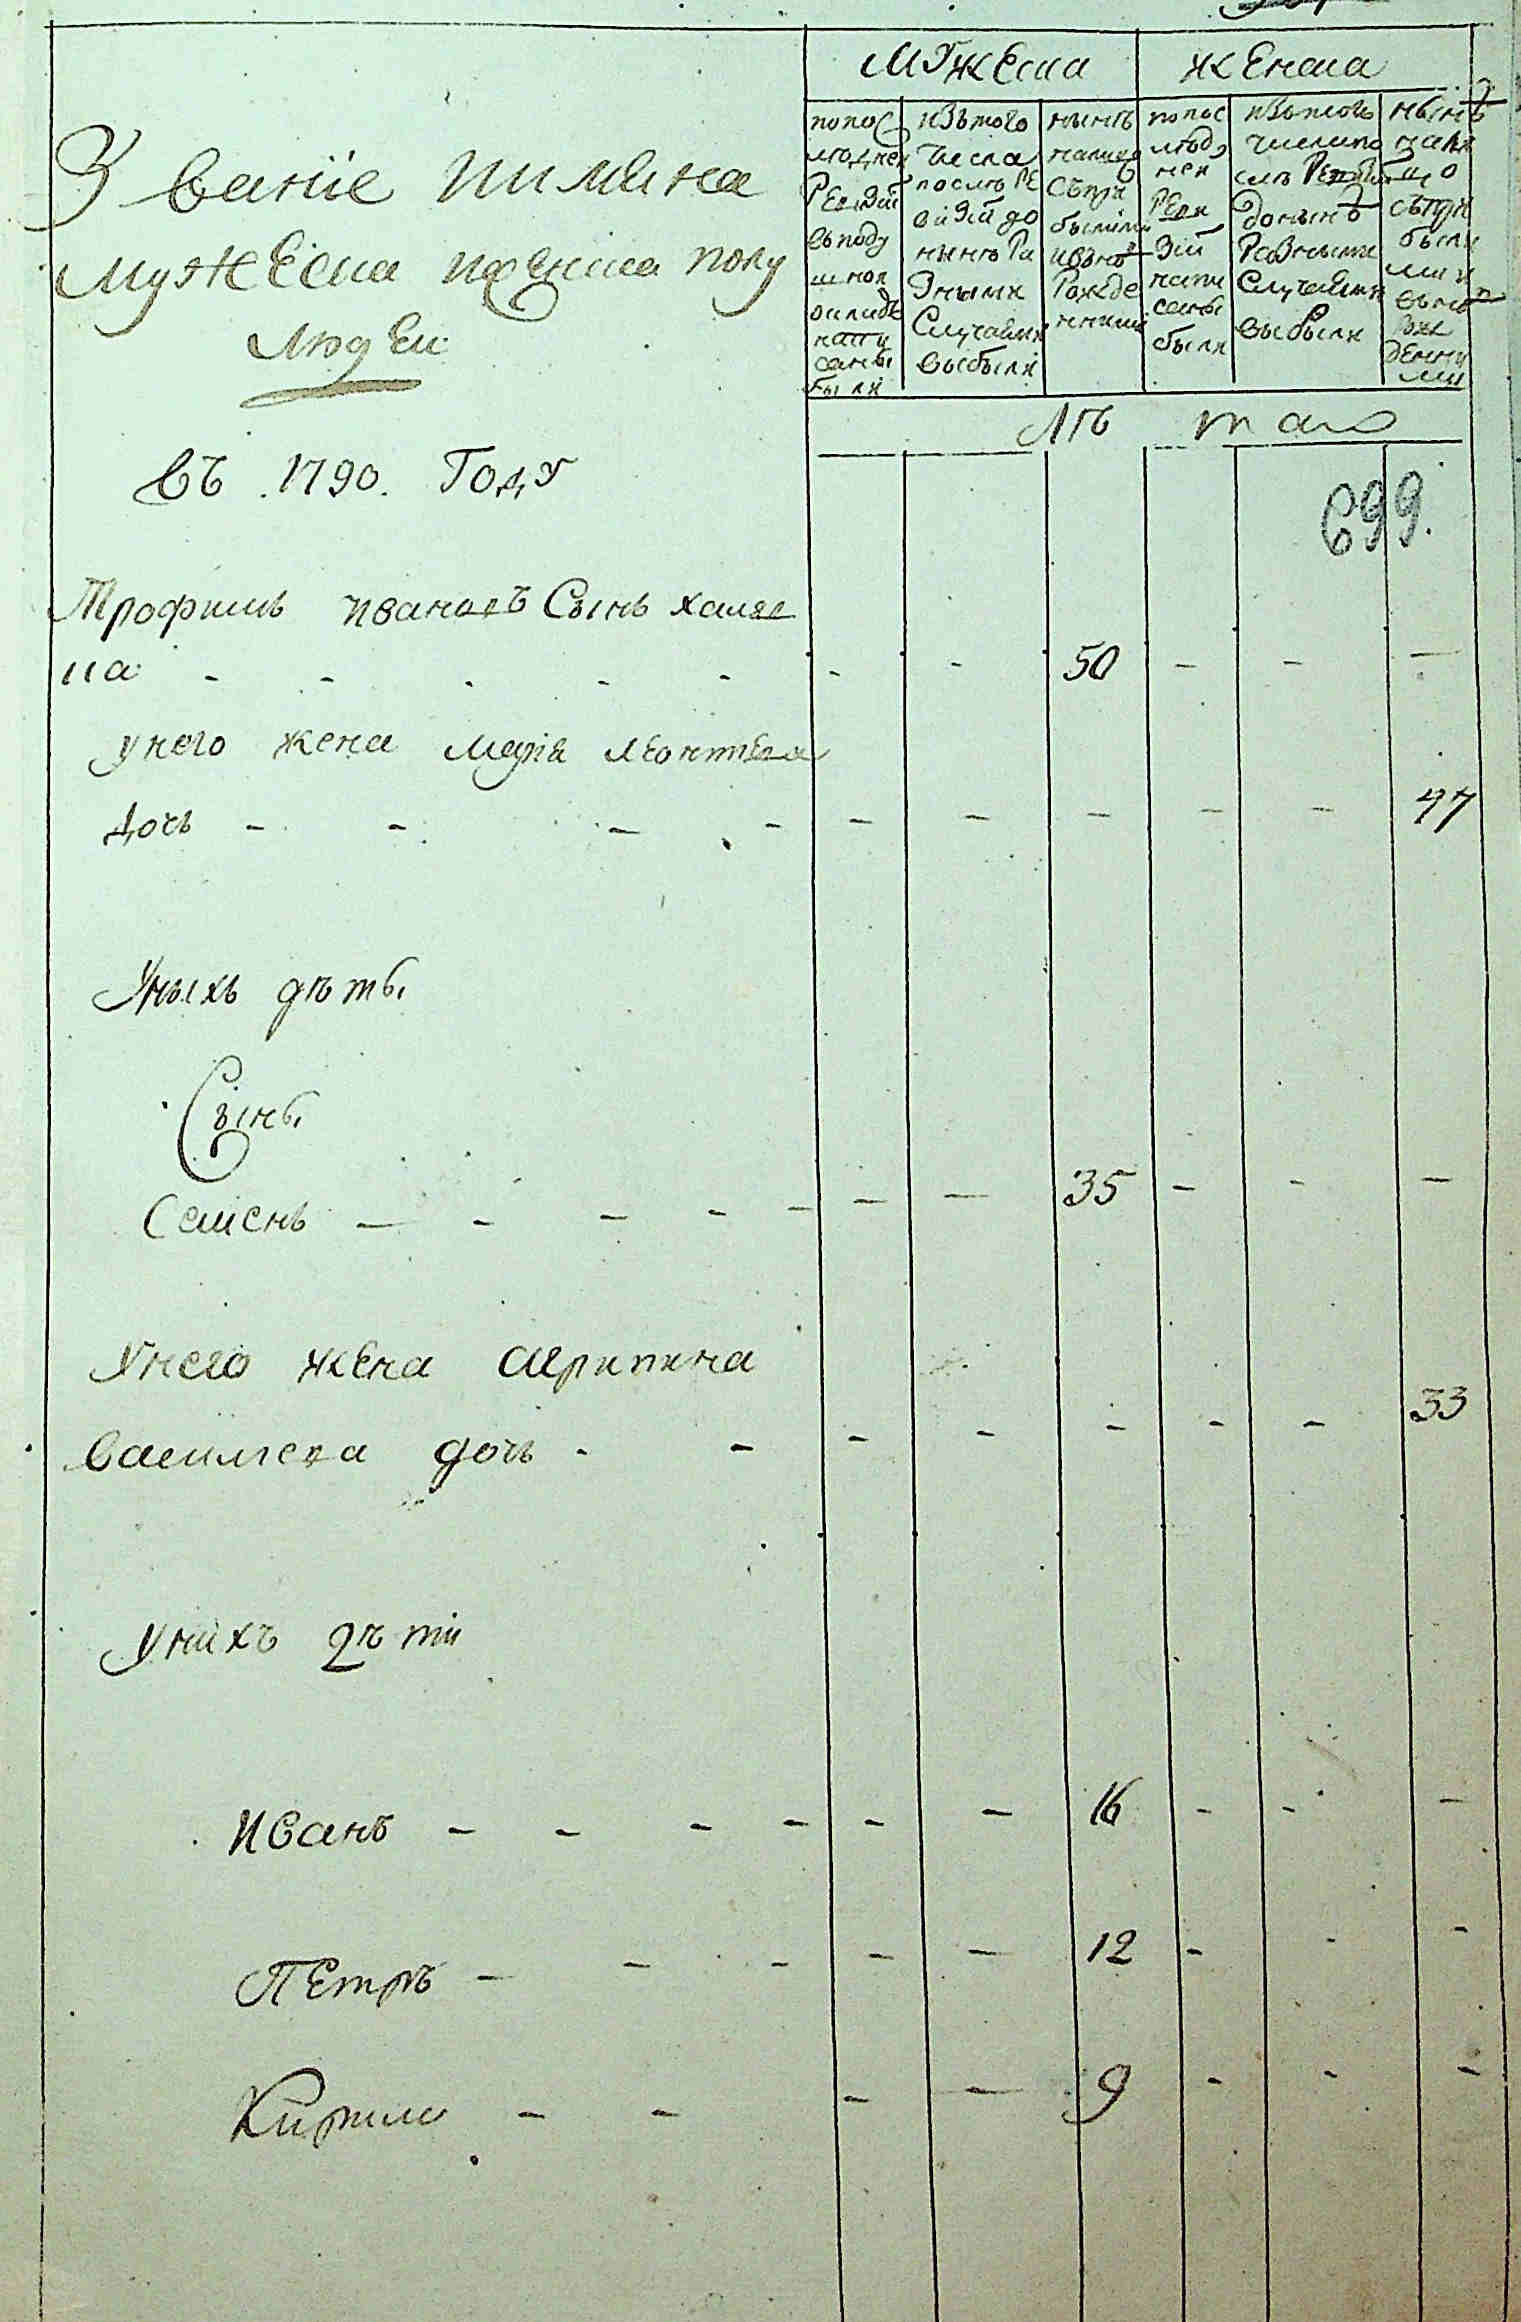 Званіе имяна
мужеска иженска полу
людеи
мужеска
женска
попос
леднеи
Ревизіи
въподу
шнои
окладъ
напи
саны
были
изътого
числа
послѣ Ре
визіи до
нынѣ Ра
зными
Случаями
выбыли
нынѣ
налицо
Съпри
былыми
ивновь
Рожде
нными
попос
лѣд
неи
Реви
зіи
напи
саны
были
изътого
числапо
слѣ Ревизіи
донынѣ
Разными
Случаями
выбыли
нынѣ
нали
цо
съпри
былы
ми и
вьновь
Рож
денны
ми
лѣ та
въ 1790. Году
699.
Трофимъ ивановъ Сынъ халяе
- - - - - - - 50 - - -
унего жена марія леонтьева
дочь - - - - - - - - - 47
Уныхъ дѣты
Сыны
Семенъ - - - - - - - 35 - - -
Унего жена агрипина
василиева дочь - - - - - - - 33
Унихъ дѣти
Иванъ - - - - - - 16 - - -
Петръ - - - - - 12 - - -
Кирило - - - - 9 - - -